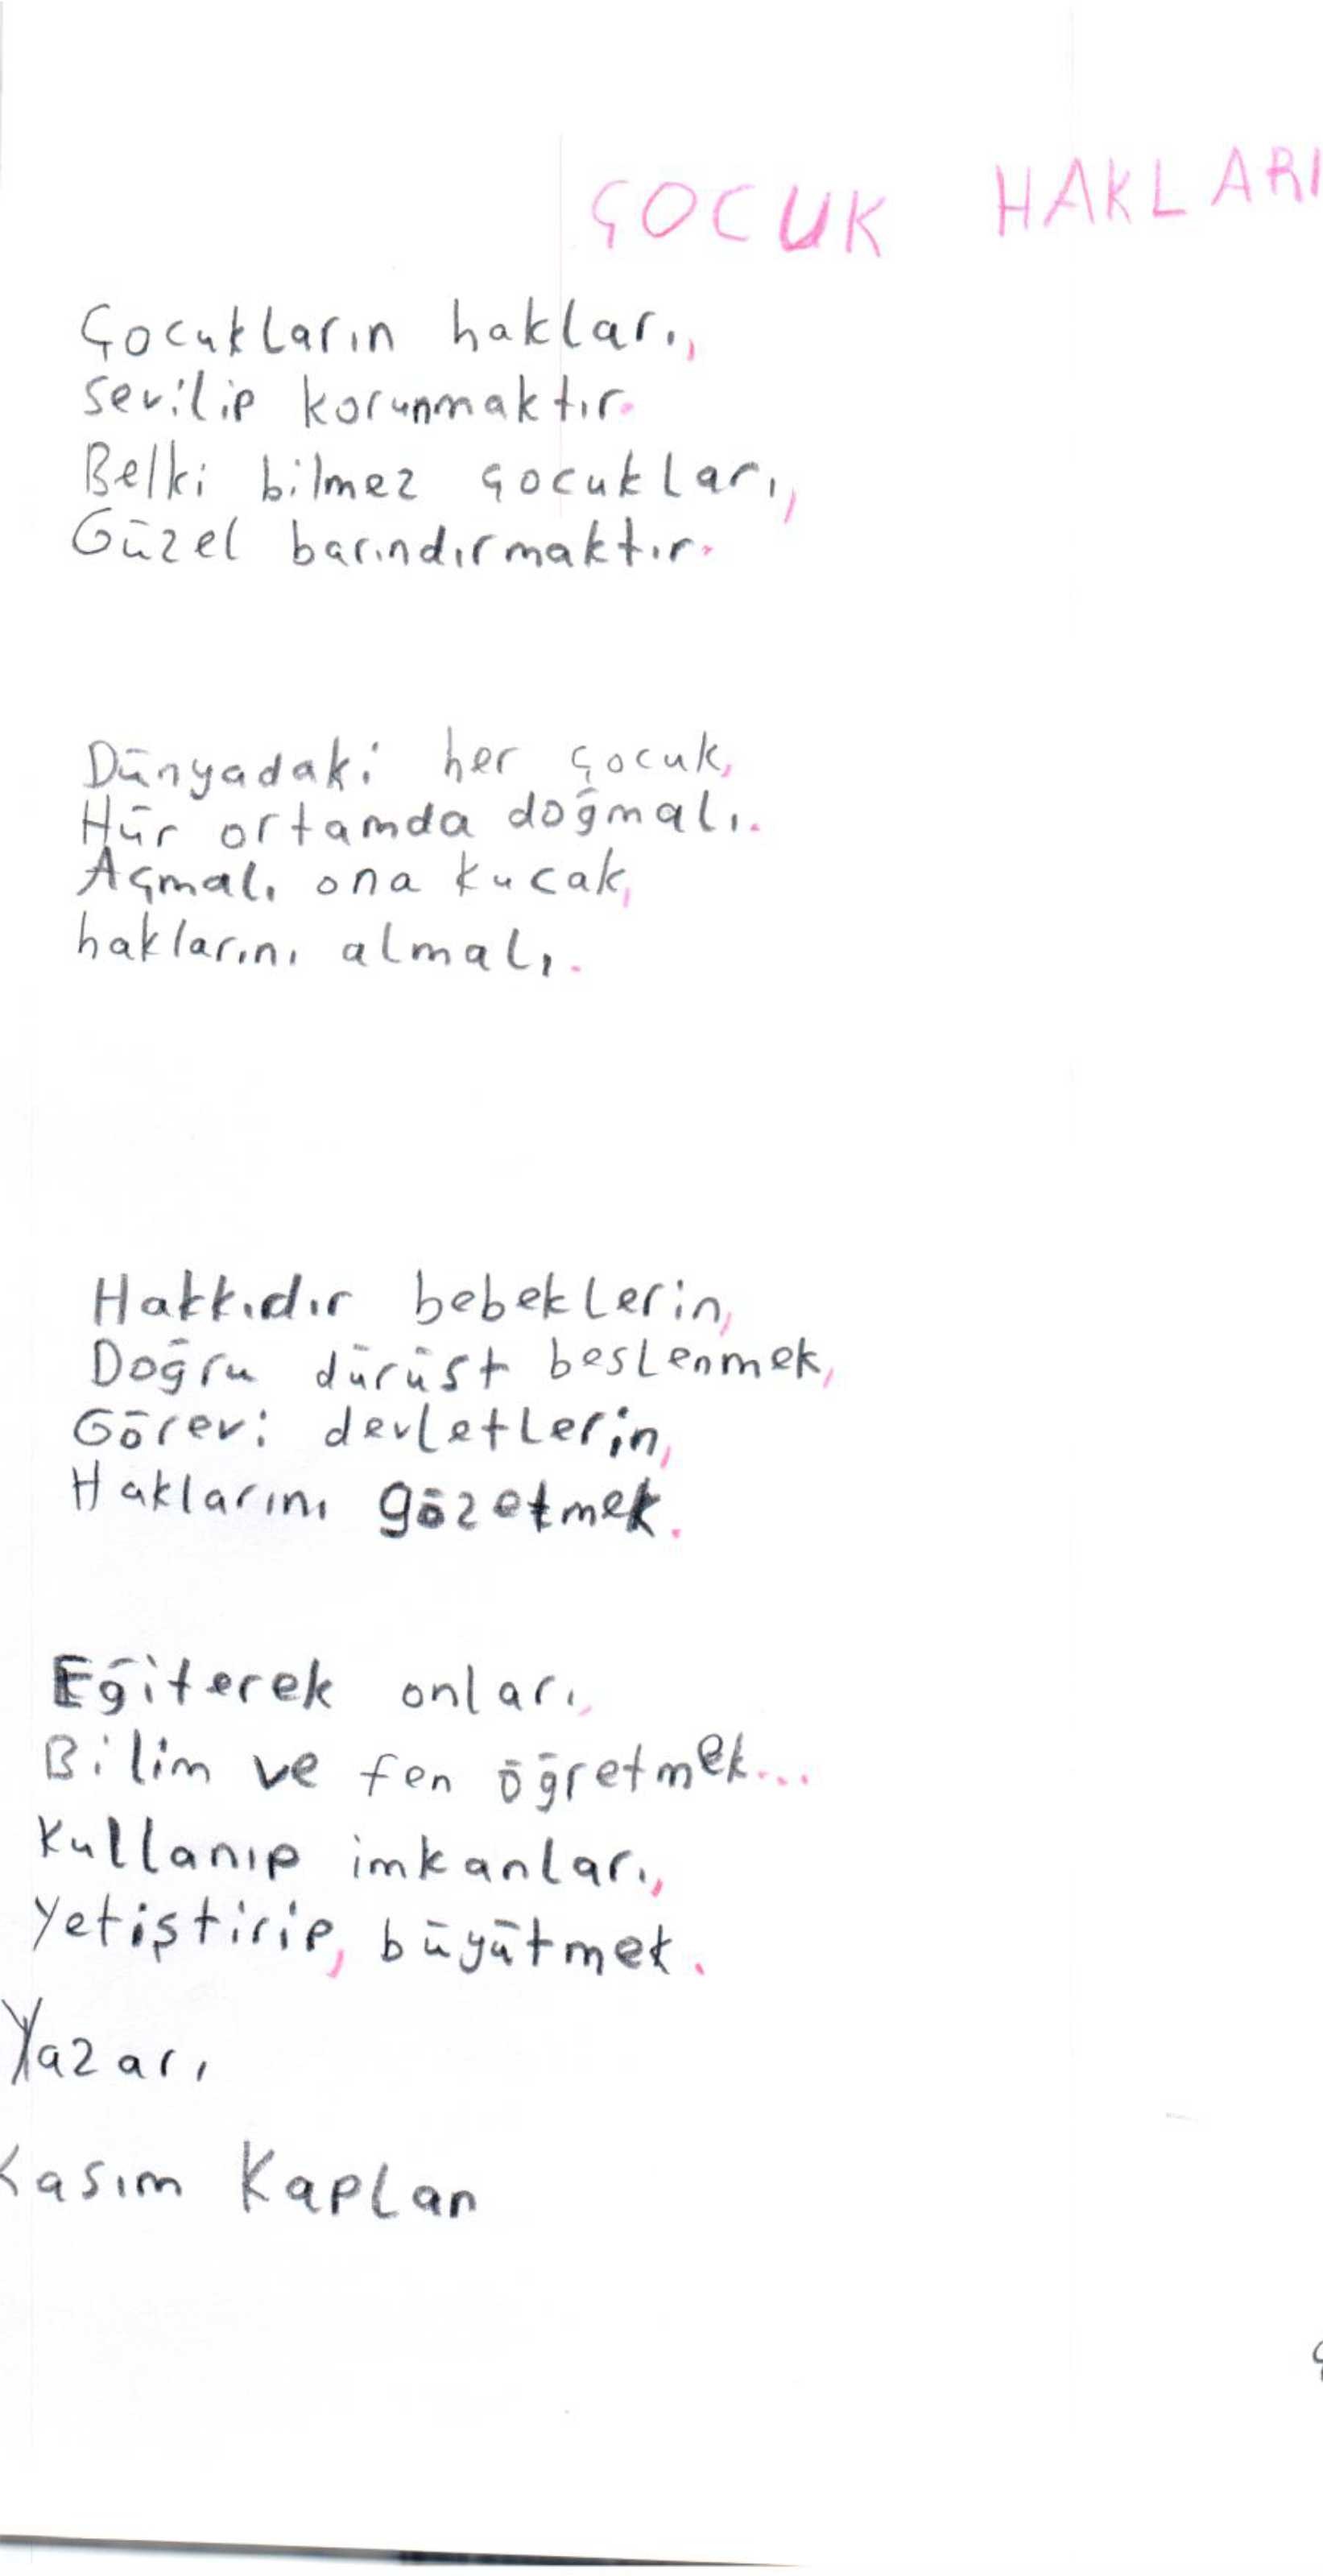 ÇOCUK HAKLARI
Çocukların hakları,
sevilip korunmaktır.
Belki bilmez çocukları,
Güzel barındırmaktır.
Dünyadaki her çocuk,
Hür ortamda doğmalı.
Açmalı ona kucak,
haklarını almalı.
Hakkıdır bebeklerin,
Doğru dürüst beslenmek,
Görevi devletlerin,
Haklarını gözetmek.
Eğiterek onları,
Bilim ve fen öğretmek...
Kullanıp imkanları,
Yetiştirip, büyütmek.
Yazarı
Kasım Kaplan